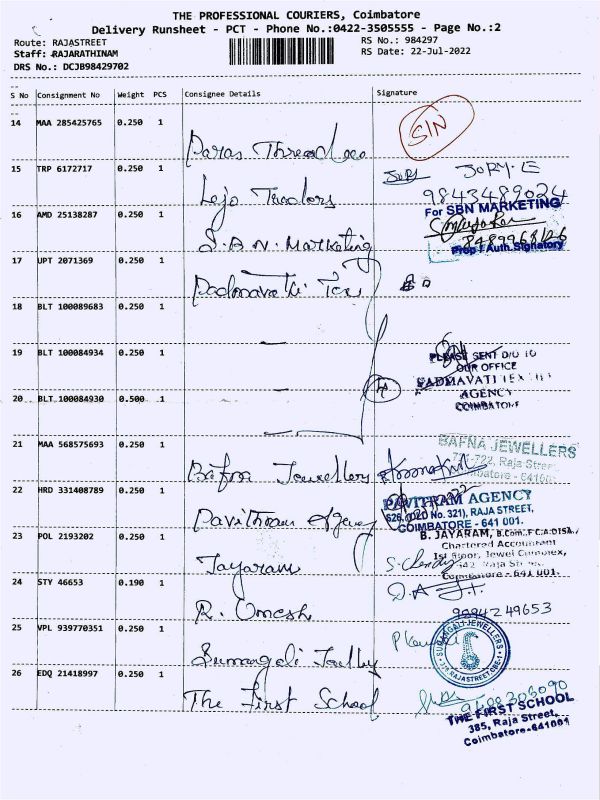 THE PROFESSIONAL COURIERS, Coimbatore
Delivery Runsheet - PCT - Phone No.:0422-3505555 - Page No.:2
Route: RAJASTREET
RS No.: 984297
Staff: RAJARATHINAM
RS Date: 22-Jul-2022
DRS No.: DCJB98429702
S No Consignment No Weight PCS Consignee Details Signature
14 MAA 285425765 0.250 1
SIN
Paras Thread
15 TRP 6172717 0.250 1
9843489024
16 AMD 25138287 0.250 1
For SBN MARKETING
S.B.N. Marketing
Prop / Auth.Signatory
17 UPT 2071369 0.250 1
Padmavathi Tex
18 BLT 100089683 0.250 1
19 BLT 100084934 0.250 1
PLEASE SENT D/U TO
OUR OFFICE
PADMAVATI TEX
20 BLT 100084930 0.500 1
AGENCY
COIMBATORE
21 MAA 568575693 0.250 1
BAFNA JEWELLERS
Raja Street
Bafna Jewellery
22 HRD 331408789 0.250 1
PAVITHRAM AGENCY
626, (OLD No. 321), RAJA STREET,
COIMBATORE - 641 001.
Pavithram Agency
23 POL 2193202 0.250 1
B. JAYARAM, B.Com.,F.C.A.DISA.,
Chartered Accountant
1st Floor, Jewel Complex,
Raja Street
Coimbatore - 641 001.
Jayaram
24 STY 46653 0.190 1
R. Omesh
9994249653
25 VPL 939770351 0.250 1
SUMANGALI JEWELLERS
RAJASTREET CBE-1
Sumangali
26 EDQ 21418997 0.250 1
The First School
THE FIRST SCHOOL
385, Raja Street,
Coimbatore-641001